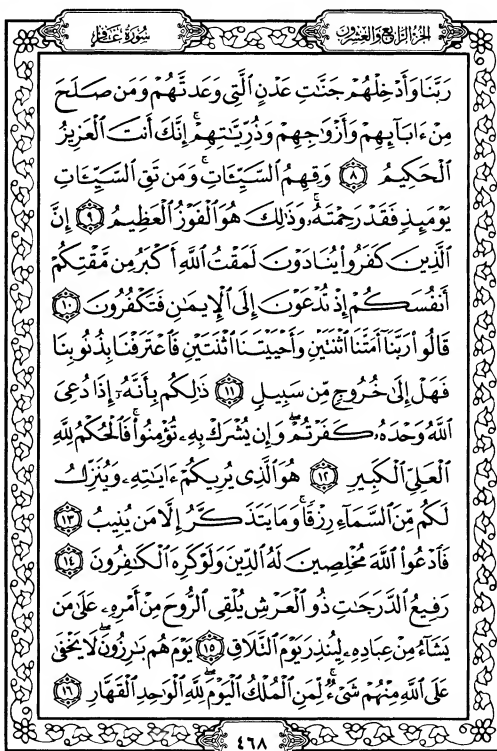 الجزء الرابع والعشرون
سورة غافر
رَبَّنَا وَأَدْخِلْهُمْ جَنَّٰتِ عَدْنٍ ٱلَّتِى وَعَدتَّهُمْ وَمَن صَلَحَ
مِنْ ءَابَآئِهِمْ وَأَزْوَٰجِهِمْ وَذُرِّيَّٰتِهِمْ ۚ إِنَّكَ أَنتَ ٱلْعَزِيزُ
ٱلْحَكِيمُ ٨ وَقِهِمُ ٱلسَّيِّـَٔاتِ ۚ وَمَن تَقِ ٱلسَّيِّـَٔاتِ
يَوْمَئِذٍ فَقَدْ رَحِمْتَهُۥ ۚ وَذَٰلِكَ هُوَ ٱلْفَوْزُ ٱلْعَظِيمُ ٩ إِنَّ
ٱلَّذِينَ كَفَرُوا۟ يُنَادَوْنَ لَمَقْتُ ٱللَّهِ أَكْبَرُ مِن مَّقْتِكُمْ
أَنفُسَكُمْ إِذْ تُدْعَوْنَ إِلَى ٱلْإِيمَٰنِ فَتَكْفُرُونَ ١٠
قَالُوا۟ رَبَّنَآ أَمَتَّنَا ٱثْنَتَيْنِ وَأَحْيَيْتَنَا ٱثْنَتَيْنِ فَٱعْتَرَفْنَا بِذُنُوبِنَا
فَهَلْ إِلَىٰ خُرُوجٍ مِّن سَبِيلٍ ١١ ذَٰلِكُم بِأَنَّهُۥٓ إِذَا دُعِىَ
ٱللَّهُ وَحْدَهُۥ كَفَرْتُمْ ۖ وَإِن يُشْرَكْ بِهِۦ تُؤْمِنُوا۟ ۚ فَٱلْحُكْمُ لِلَّهِ
ٱلْعَلِىِّ ٱلْكَبِيرِ ١٢ هُوَ ٱلَّذِى يُرِيكُمْ ءَايَٰتِهِۦ وَيُنَزِّلُ
لَكُم مِّنَ ٱلسَّمَآءِ رِزْقًا ۚ وَمَا يَتَذَكَّرُ إِلَّا مَن يُنِيبُ ١٣
فَٱدْعُوا۟ ٱللَّهَ مُخْلِصِينَ لَهُ ٱلدِّينَ وَلَوْ كَرِهَ ٱلْكَٰفِرُونَ ١٤
رَفِيعُ ٱلدَّرَجَٰتِ ذُو ٱلْعَرْشِ يُلْقِى ٱلرُّوحَ مِنْ أَمْرِهِۦ عَلَىٰ مَن
يَشَآءُ مِنْ عِبَادِهِۦ لِيُنذِرَ يَوْمَ ٱلتَّلَاقِ ١٥ يَوْمَ هُم بَٰرِزُونَ ۖ لَا يَخْفَىٰ
عَلَى ٱللَّهِ مِنْهُمْ شَىْءٌ ۚ لِّمَنِ ٱلْمُلْكُ ٱلْيَوْمَ ۖ لِلَّهِ ٱلْوَٰحِدِ ٱلْقَهَّارِ ١٦
٤٦٨